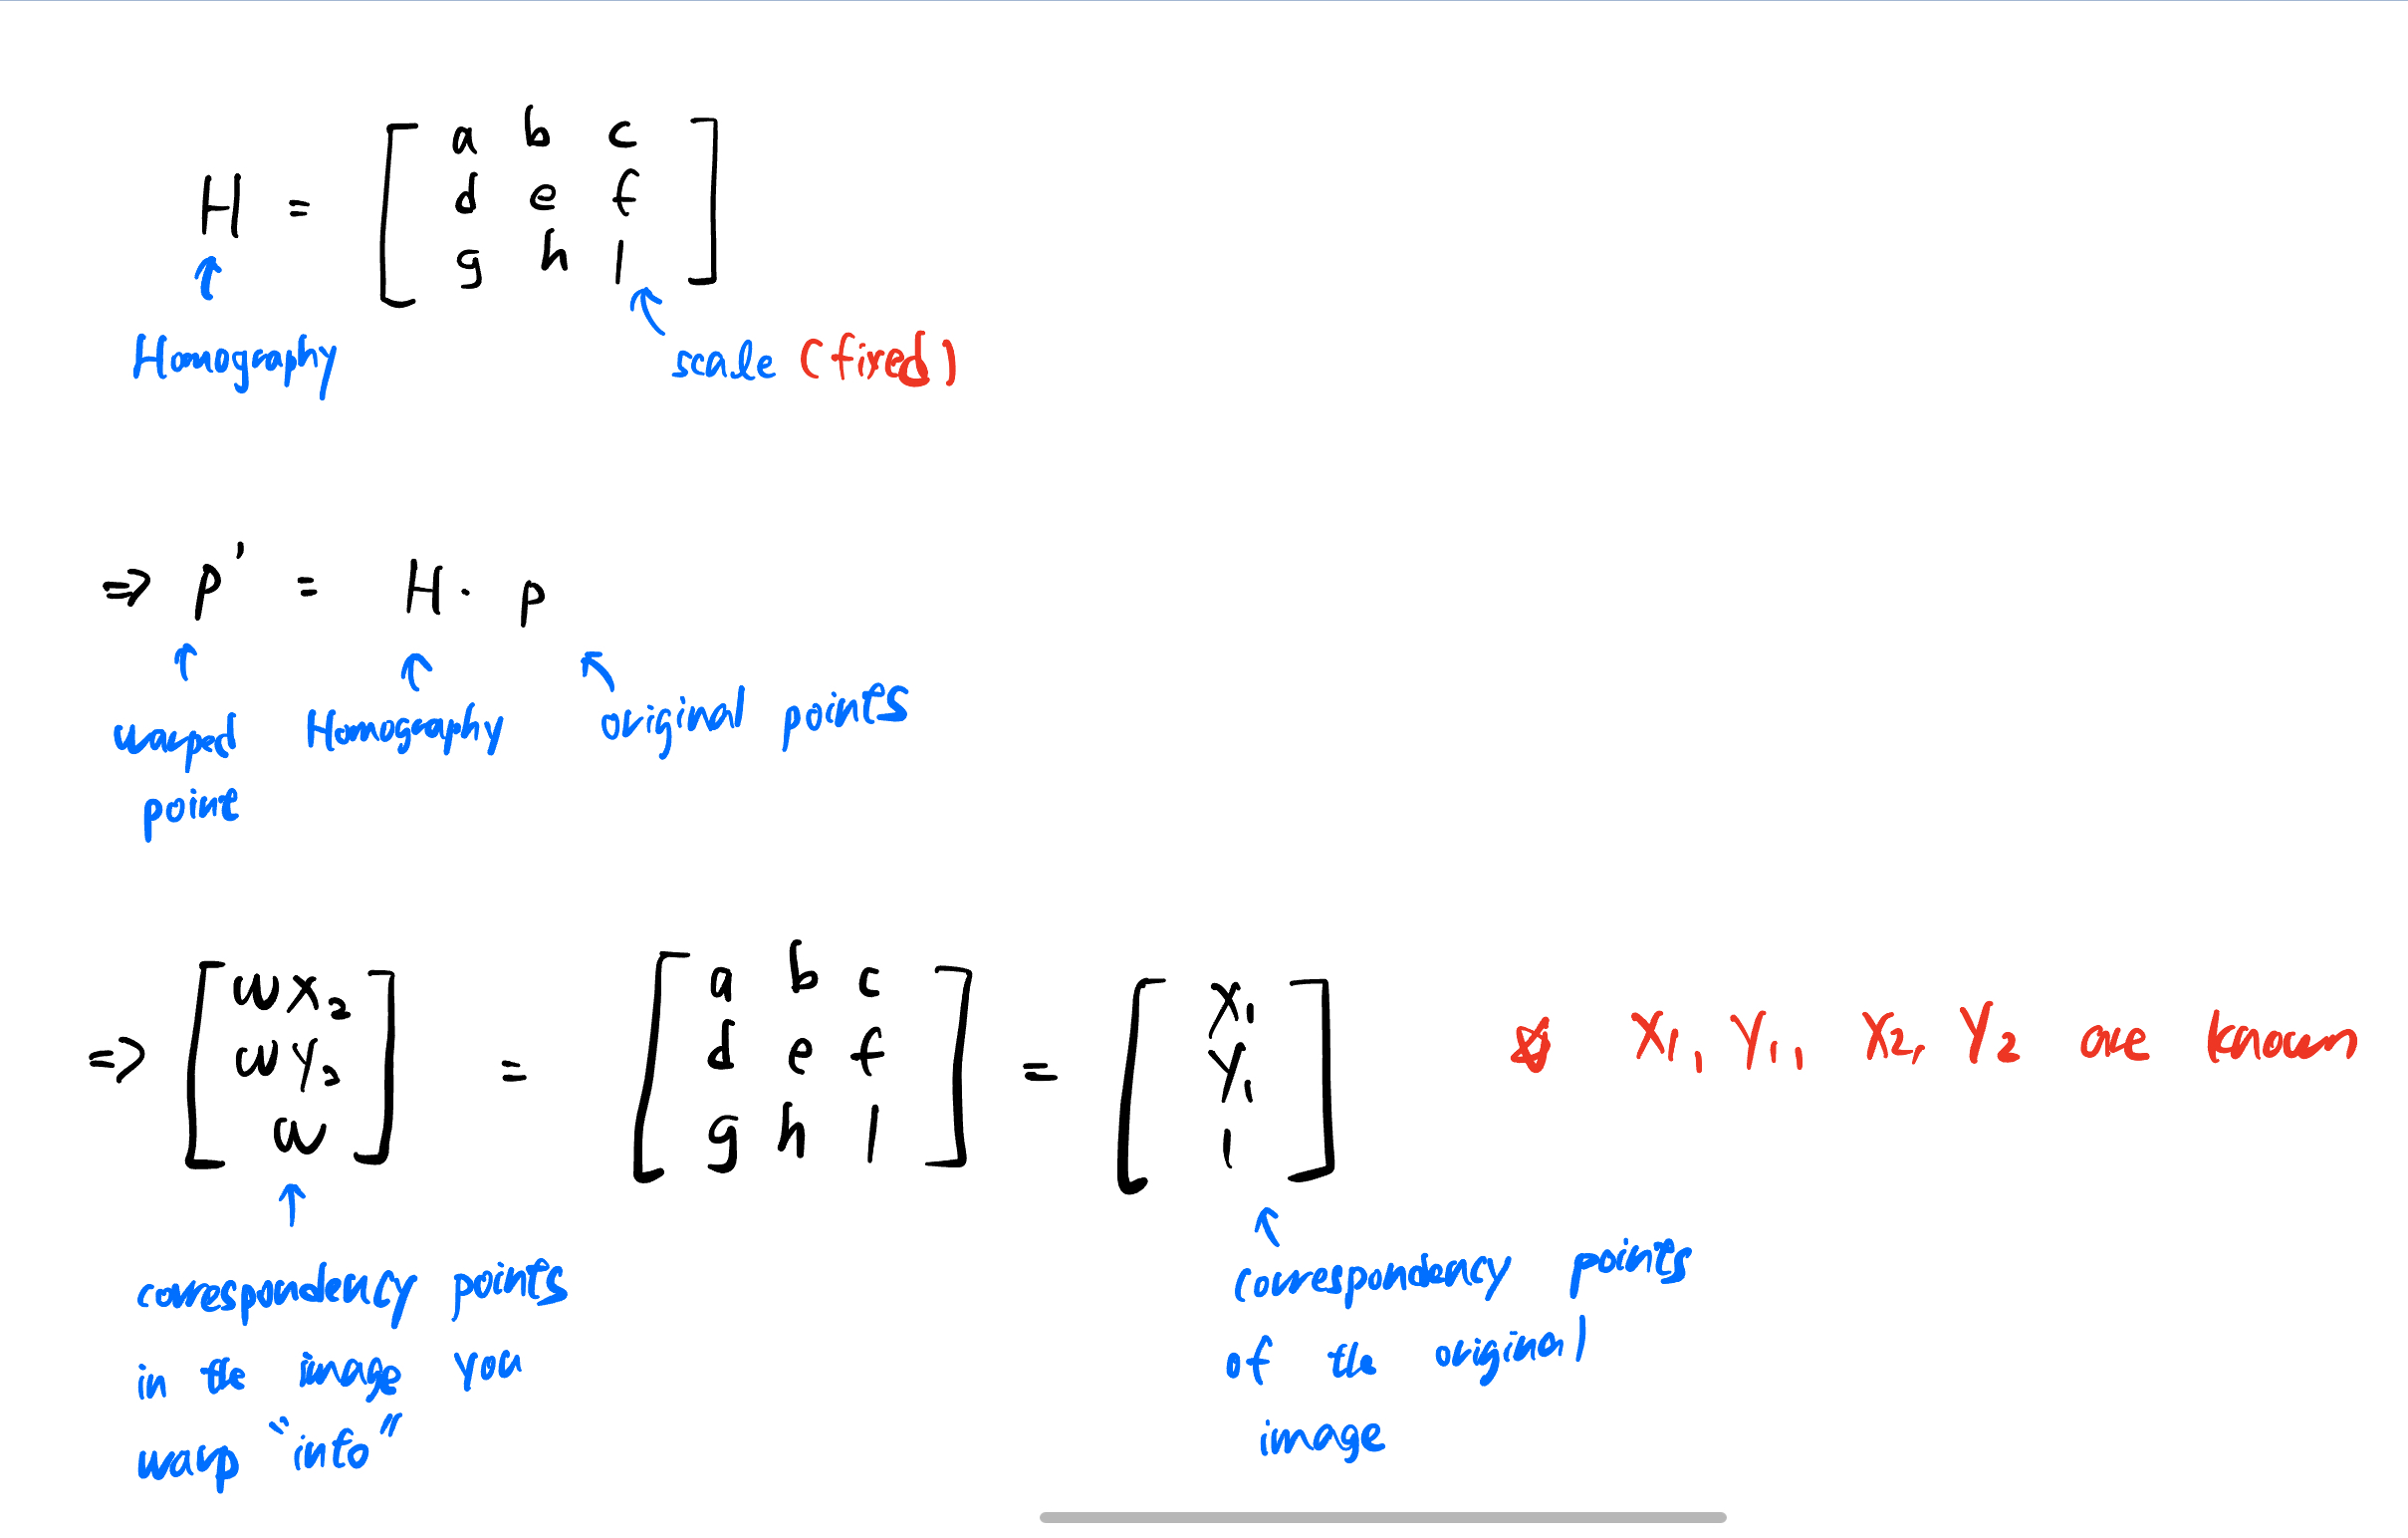 H = [ a b c
d e f
g h 1 ]
Homography
scale (fixed)
⇒ p' = H · p
warped point
Homography
original points
⇒ [ wx₂
wy₂
w ]
=
[ a b c
d e f
g h 1 ]
=
[ x₁
y₁
1 ]
☆ X₁, Y₁, X₂, Y₂ are known
correspondency points
in the image you
warp "into"
correspondency points
of the original
image